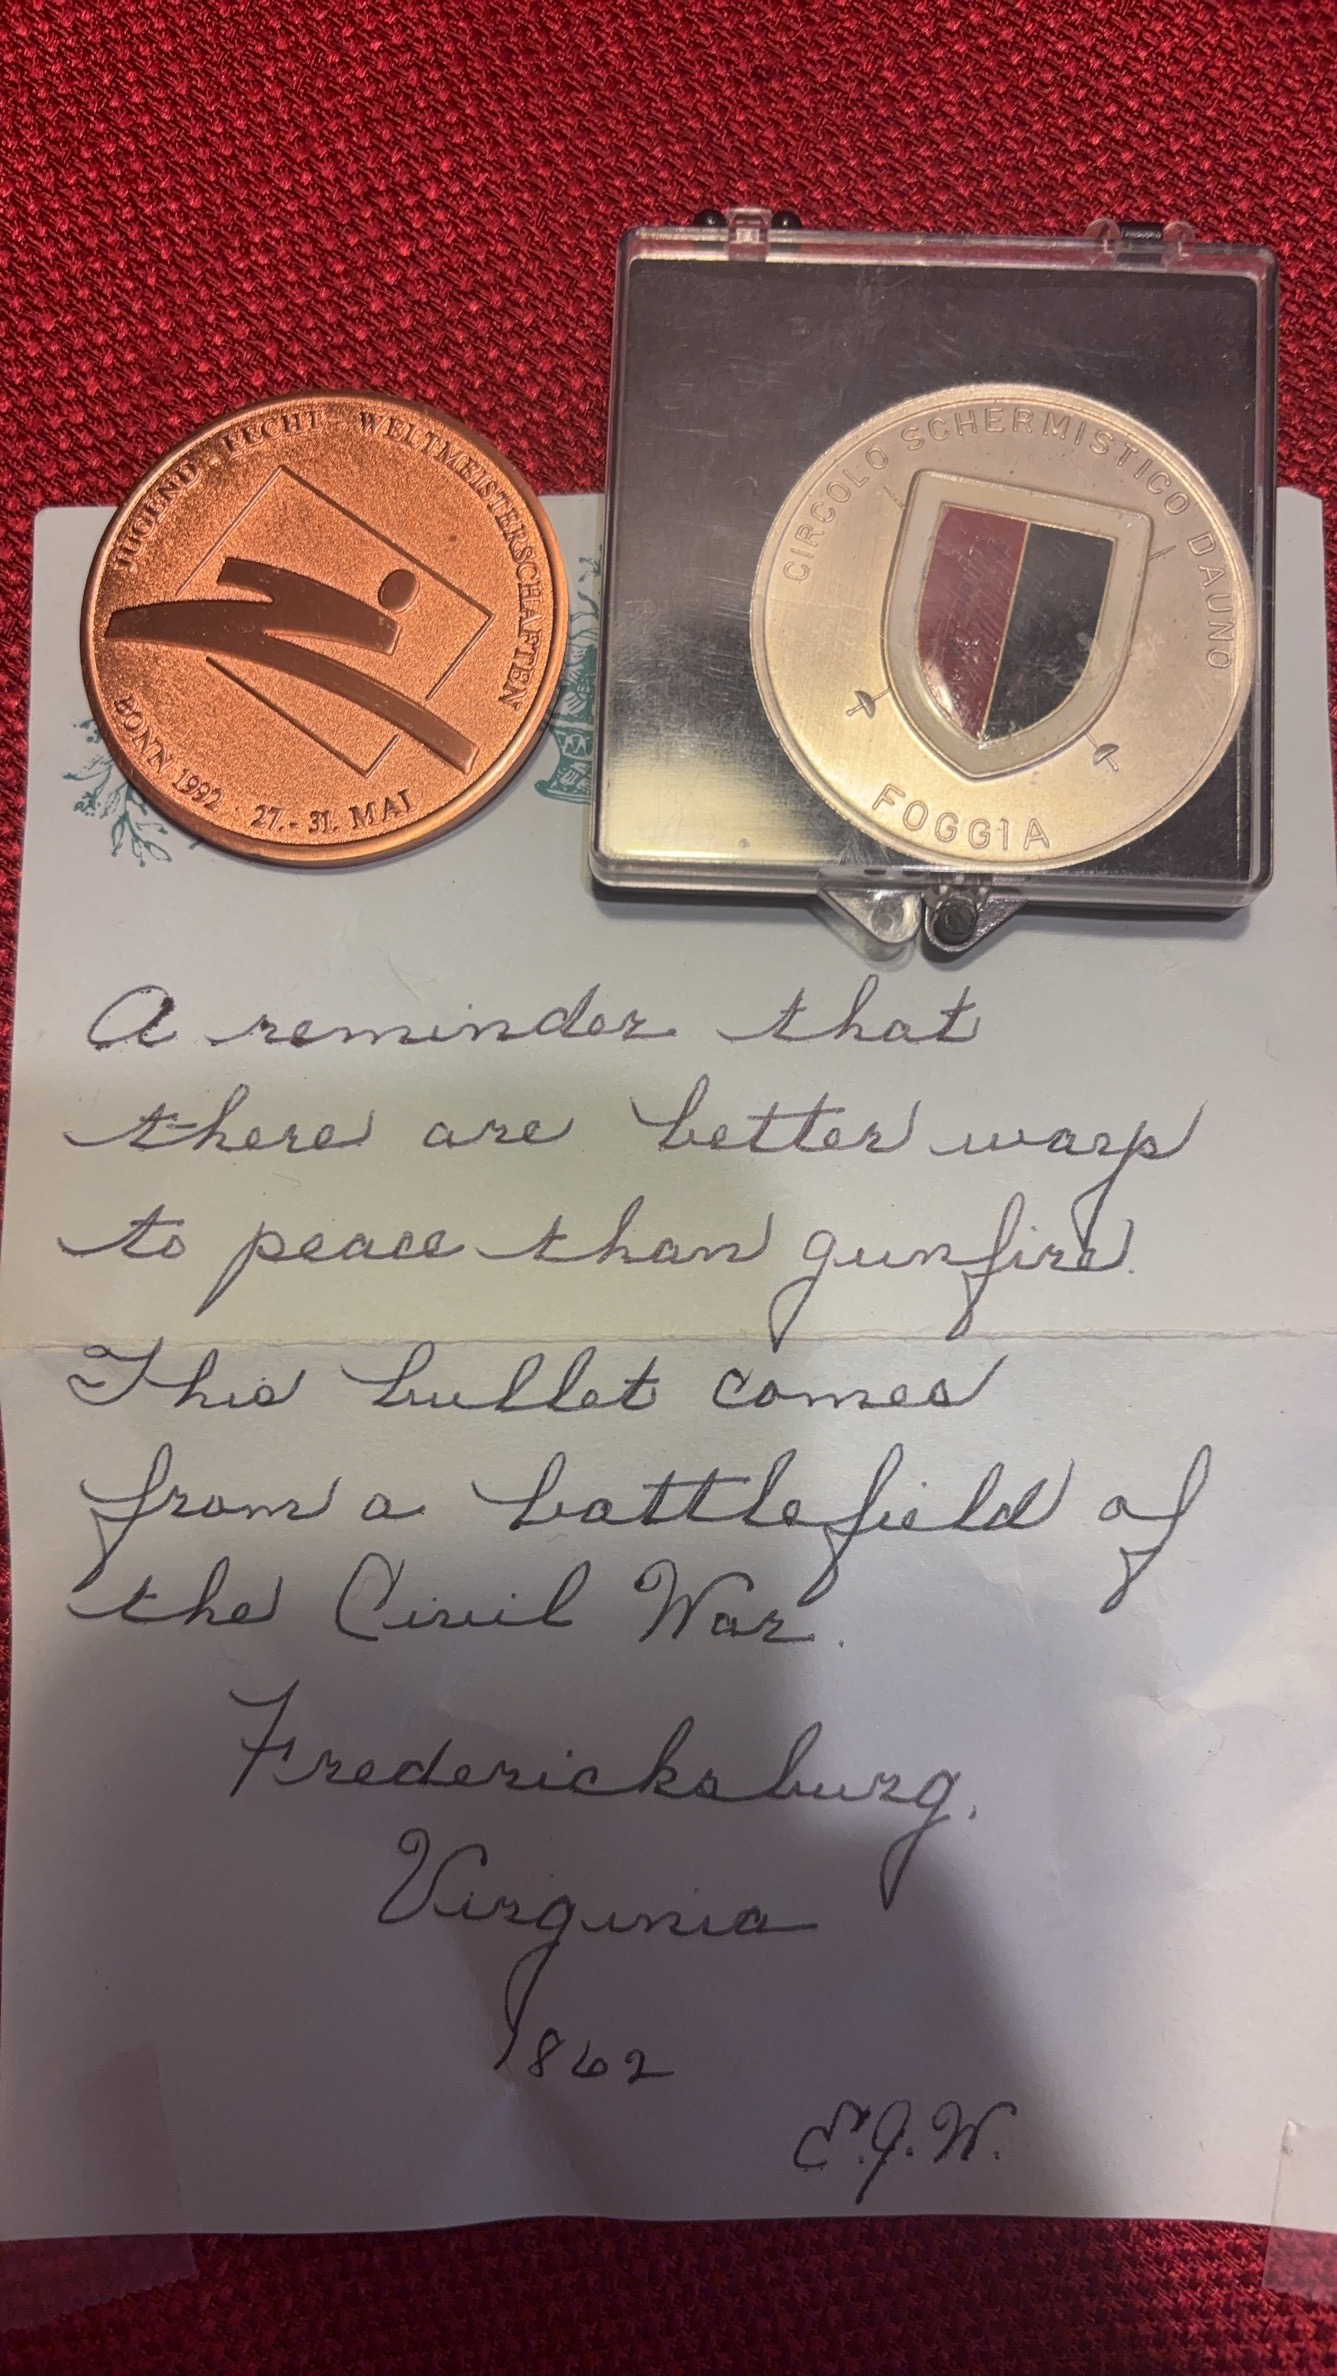 JUGEND - FECHT - WELTMEISTERSCHAFTEN
BONN 1992 · 27. - 31. MAI
CIRCOLO SCHERMISTICO DAUNO
FOGGIA
A reminder that
there are better ways
to peace than gunfire.
This bullet comes
from a battlefield of
the Civil War.
Fredericksburg,
Virginia
1862
E.J.W.